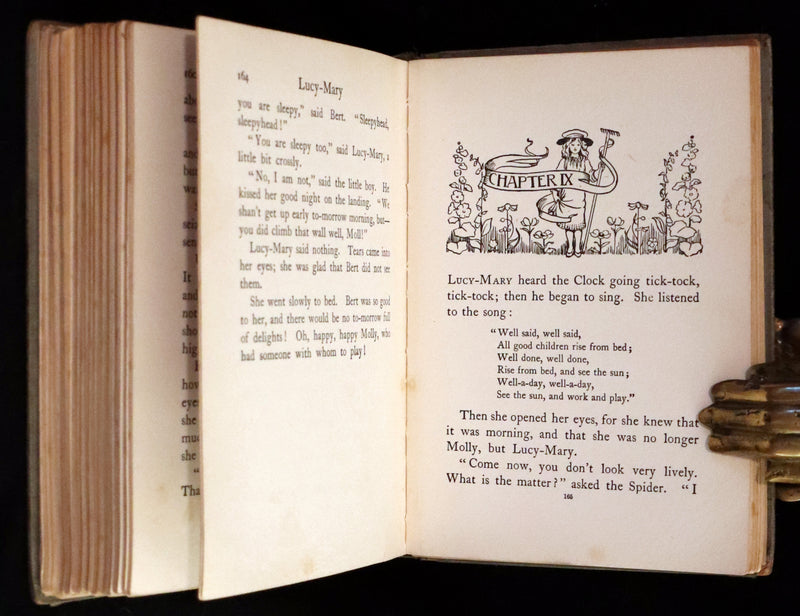 164
Lucy-Mary
you are sleepy," said Bert. "Sleepyhead,
sleepyhead!"
"You are sleepy too," said Lucy-Mary, a
little bit crossly.
"No, I am not," said the little boy. He
kissed her good night on the landing. "We
shan't get up early to-morrow morning, but—
you did climb that wall well, Moll!"
Lucy-Mary said nothing. Tears came into
her eyes; she was glad that Bert did not see
them.
She went slowly to bed. Bert was so good
to her, and there would be no to-morrow full
of delights! Oh, happy, happy Molly, who
had someone with whom to play!
CHAPTER IX
LUCY-MARY heard the Clock going tick-tock,
tick-tock; then he began to sing. She listened
to the song:
"Well said, well said,
All good children rise from bed;
Well done, well done,
Rise from bed, and see the sun;
Well-a-day, well-a-day,
See the sun, and work and play."
Then she opened her eyes, for she knew that
it was morning, and that she was no longer
Molly, but Lucy-Mary.
"Come now, you don't look very lively.
What is the matter?" asked the Spider. "I
165